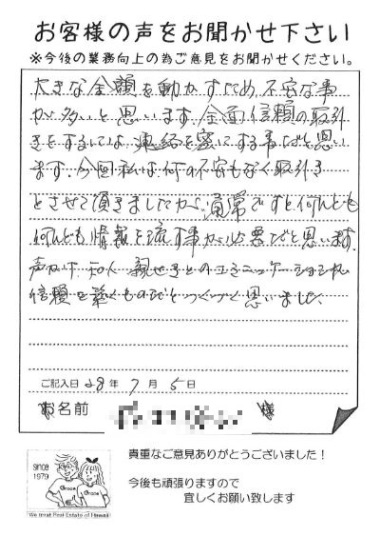 お客様の声をお聞かせ下さい
※今後の業務向上の為ご意見をお聞かせください。
大きな金額を動かすため、不安な事
が多いと思います。全面信頼の取引
きをするには、連絡を密にする事だと思い
ます。今回私は何の不安もなく取引き
とさせて頂きましたが、通常ですと何んども
何んども情報を流す事が必要だと思います。
声かけ、知人、親せきとのコミニュケーションが
信頼を築くものだとつくづく思いました。
ご記入日 28年 7月 5日
お名前 様
since
1979
We treat Real Estate of Hawaii
貴重なご意見ありがとうございました！
今後も頑張りますので
宜しくお願い致します